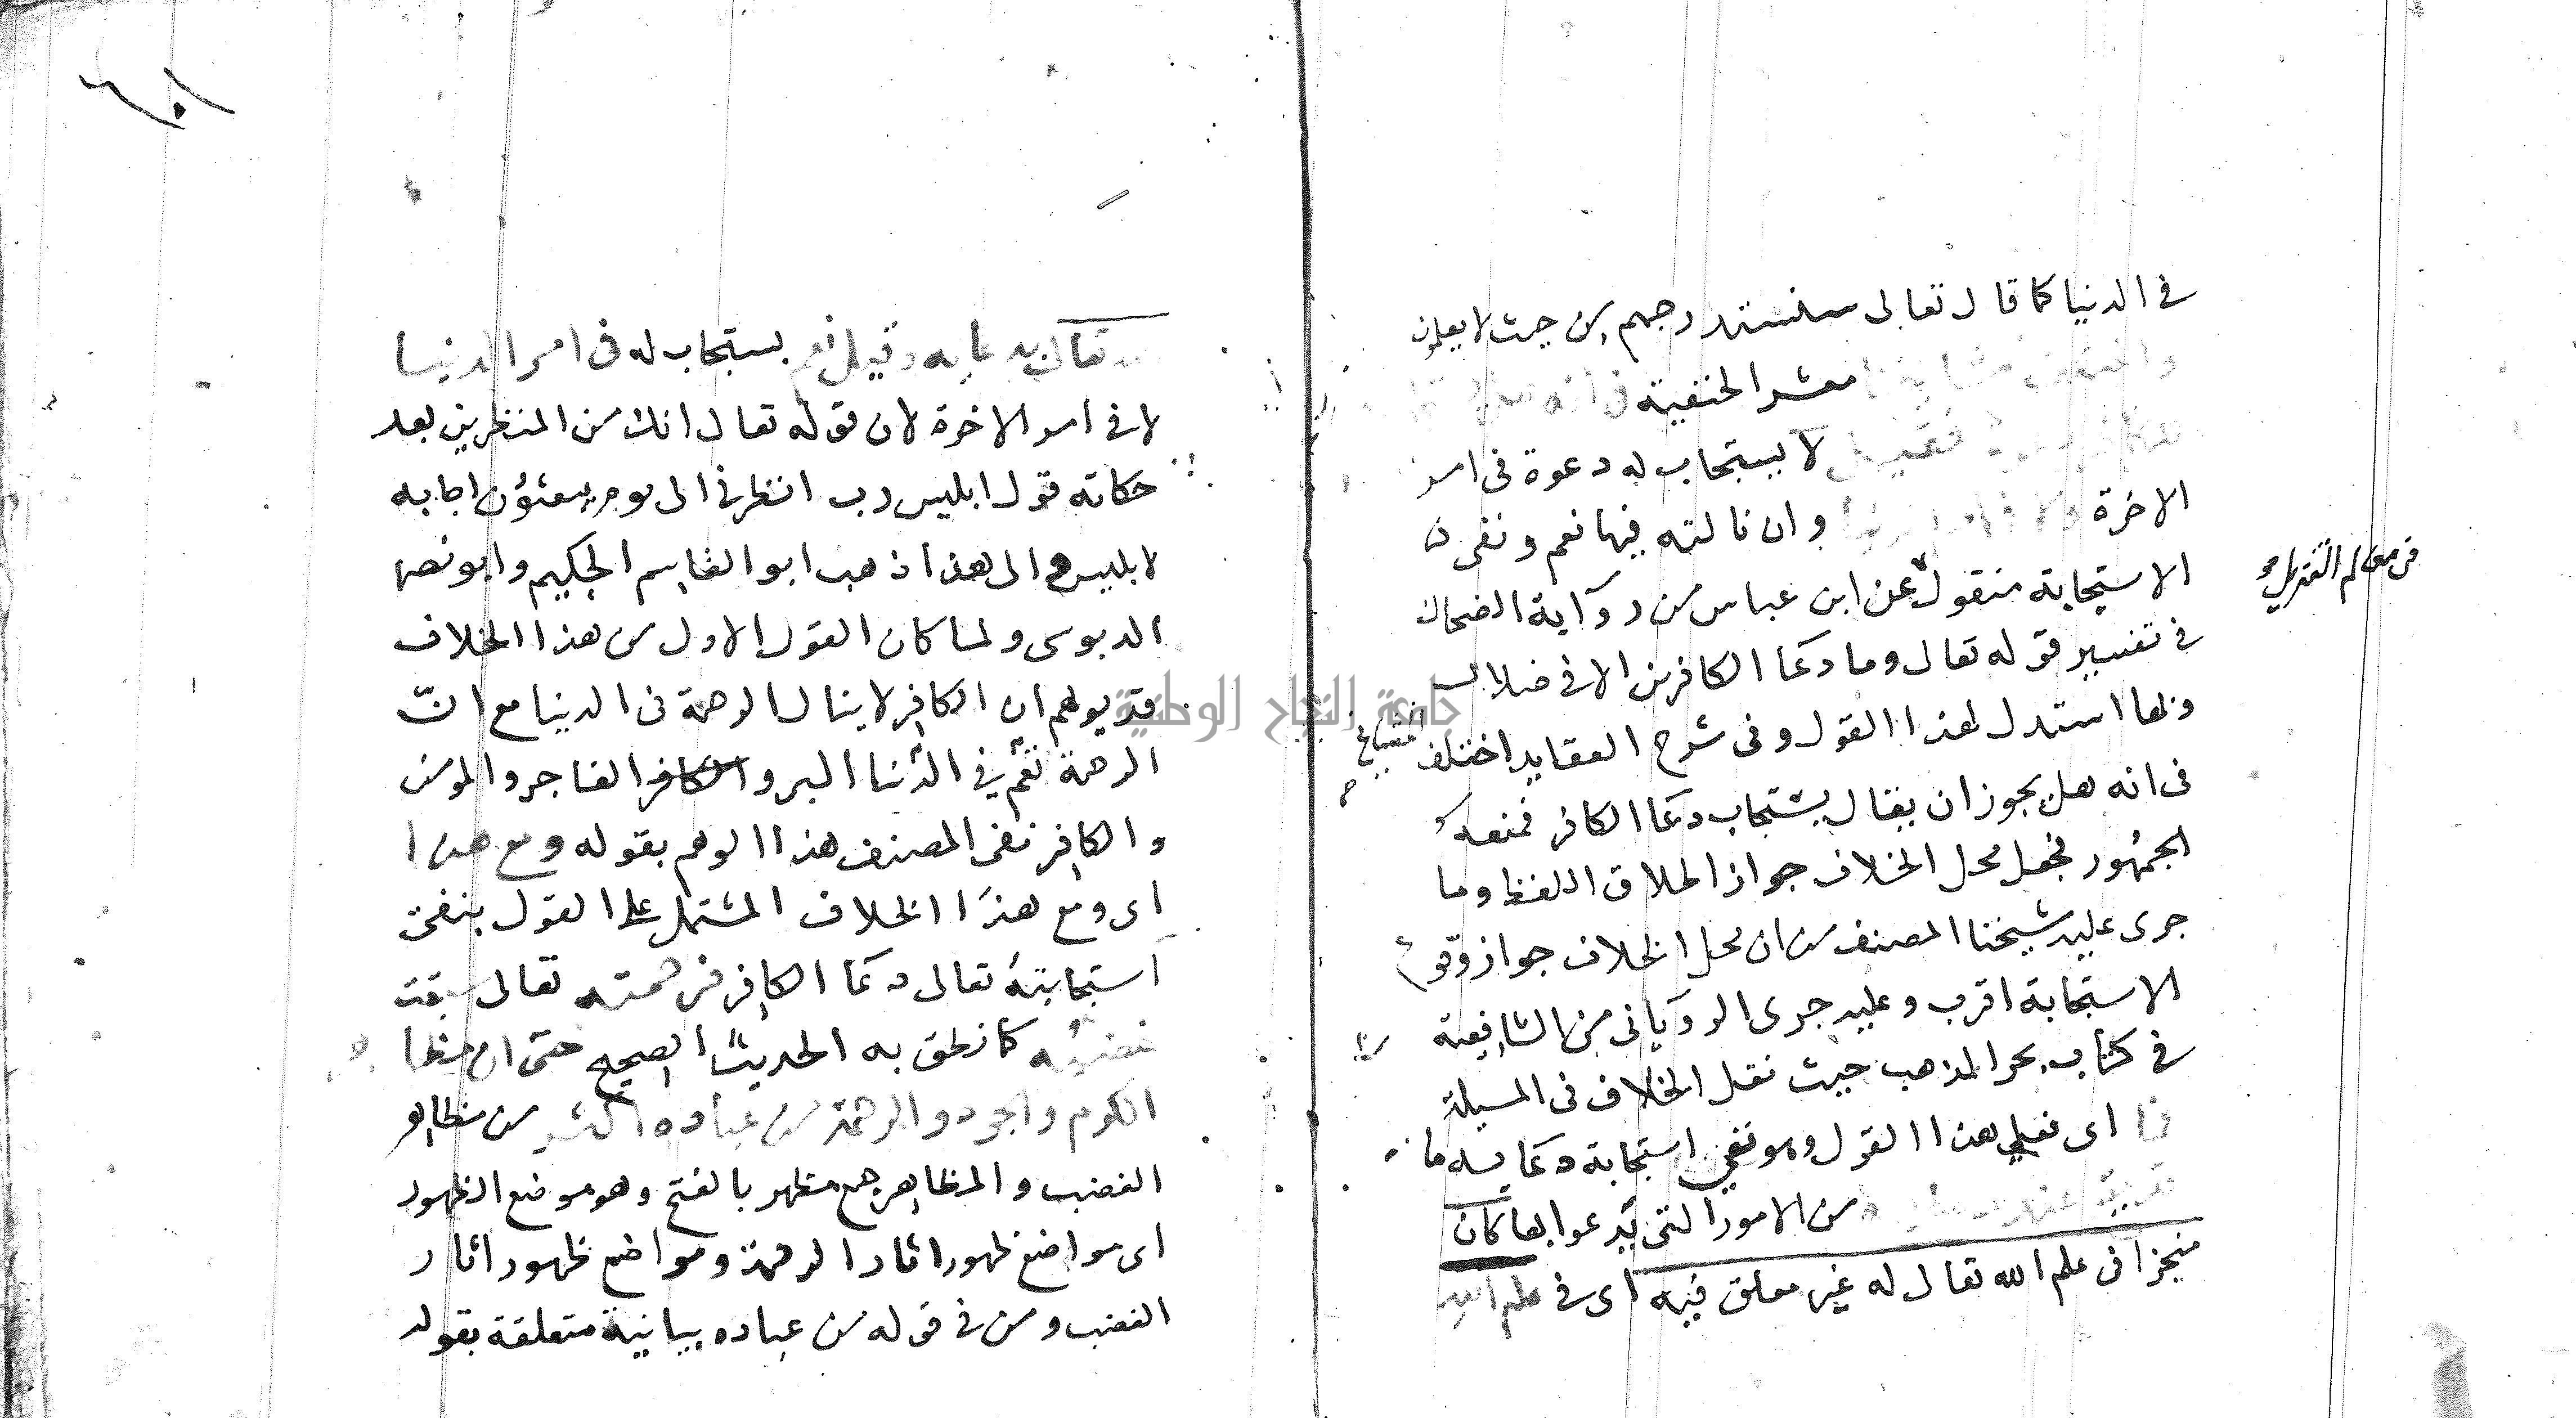 في الدنيا كما قال تعالى سنستدرجهم من حيث لا يعلمون
معشر الحنفية في انه
لا يستجاب له دعوة في امر
الاخرة وان نالته فيها نعم ونفى
الاستجابة منقول عن ابن عباس من رواية الضحاك
من معالم التنزيل
في تفسير قوله تعالى وما دعا الكافرين الا في ضلال
وبها استدل لهذا القول وفي شرح العقايد اختلف
المشايخ
في انه هل يجوز ان يقال يستجاب دعا الكافر فمنعه
الجمهور فجعل محل الخلاف جواز اطلاق اللفظ وما
جرى عليه شيخنا المصنف من ان محل الخلاف جواز وقوع
الاستجابة اقرب وعليه جرى الروياني من الشافعية
في كتاب بحر المذهب حيث نقل الخلاف في المسيلة
اى فعلي هذا القول وهو نفي استجابة دعايه ما
من الامور التي يدعوا بها كان
منجزا في علم الله تعالى له غير معلق فيه اى في علم الله
تعالى بدعايه وقيل نعم يستجاب له في امر الدنيا
لا في امر الاخرة لان قوله تعالى انك من المنظرين بعد
حكاته قول ابليس رب انظرني الى يوم يبعثون اجابه
لابليس والى هذا ذهب ابو القاسم الحكيم وابو نصر
الدبوسى ولما كان القول الاول من هذا الخلاف
قد يوهم ان الكافر لا ينال الرحمة في الدنيا مع ان
الرحمة تعم في الدنيا البر والكافر الفاجر والمومن
والكافر نفى المصنف هذا الوهم بقوله ومع هذا
اى ومع هذا الخلاف المشتمل على القول بنفي
استجابته تعالى دعا الكافر فرحمته تعالى سبقت
غضبه كما نطق به الحديث الصحيح حتى ان مظا
الكرم والجود والرحمة من عباده اكثر من مظاهر
الغضب والمظاهر جمع مظهر بالفتح وهو موضع الظهور
اى مواضع ظهور اثار الرحمة ومواضع ظهور اثار
الغضب ومن في قوله من عباده بيانية متعلقة بقوله
جامعة النجاح الوطنية